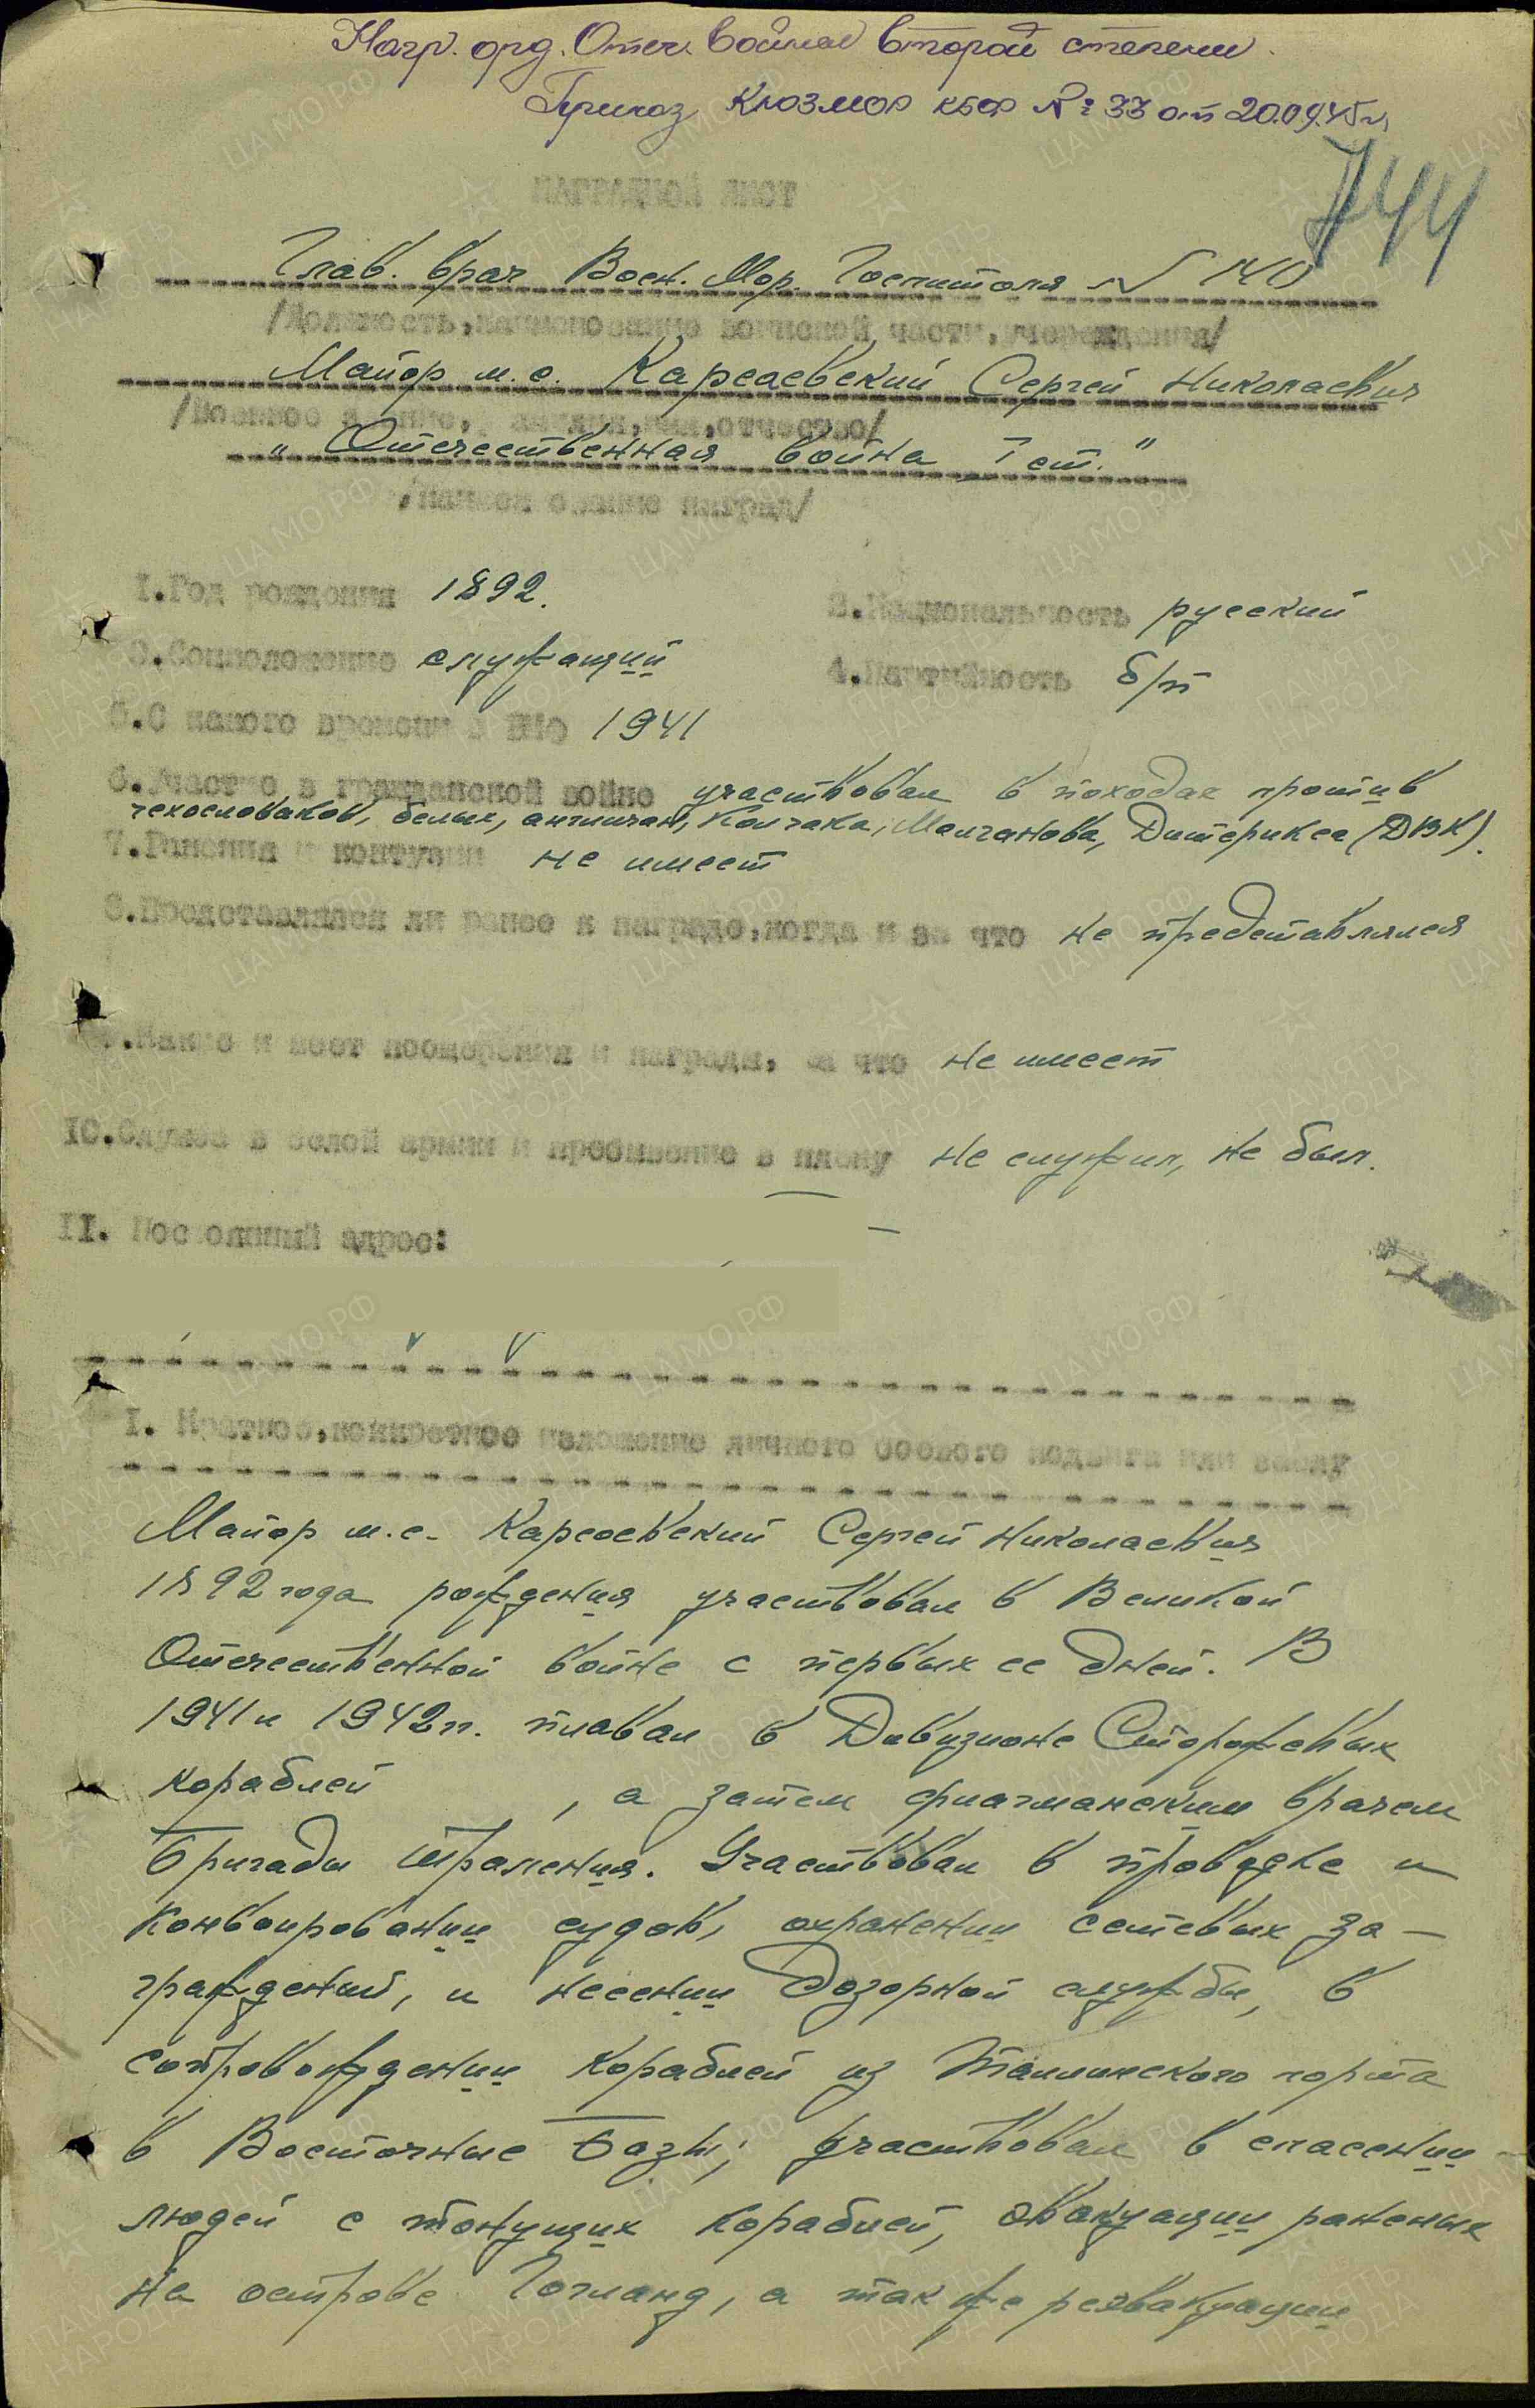 Нагр. орд. Отеч. Войны второй степени.
Приказ КЮЗМОР КБФ № 33 от 20.09.45 г.
744
НАГРАДНОЙ ЛИСТ
Глав. врач Воен. Мор. Госпиталя № 140
/Должность,наименование воинской части,учреждения/
Майор м.с. Карсаевский Сергей Николаевич
/Военное звание, фамилия,имя,отчество/
"Отечественная война I ст."
/наименование наград/
I.Год рождения 1892.
2.Национальность русский
3.Соцположение служащий
4.Партийность б/п
5.С какого времени в ВМФ 1941
6.Участие в гражданской войне участвовал в походах против
чехословаков, белых, англичан, Колчака, Молчанова, Дитерикса (ДВК).
7.Ранения и контузии не имеет
8.Представлялся ли ранее к награде,когда и за что не представлялся
9.Какие имеет поощрения и награды, за что не имеет
10.Служба в белой армии и пребывание в плену не служил, не был.
II. Постоянный адрес:
I. Краткое,конкретное изложение личного боевого подвига или заслуг
Майор м.с. Карсаевский Сергей Николаевич
1892 года рождения участвовал в Великой
Отечественной войне с первых ее дней. В
1941 и 1942 гг. плавал в Дивизионе Сторожевых
кораблей , а затем флагманским врачем
Бригады Траления. Участвовал в проводке и
конвоировании судов, охранении сетевых за-
граждений, и несении дозорной службы, в
сопровождении кораблей из Таллинского порта
в Восточные Базы; участвовал в спасении
людей с тонущих кораблей, эвакуации раненых
на острове Гогланд, а так же реэвакуации